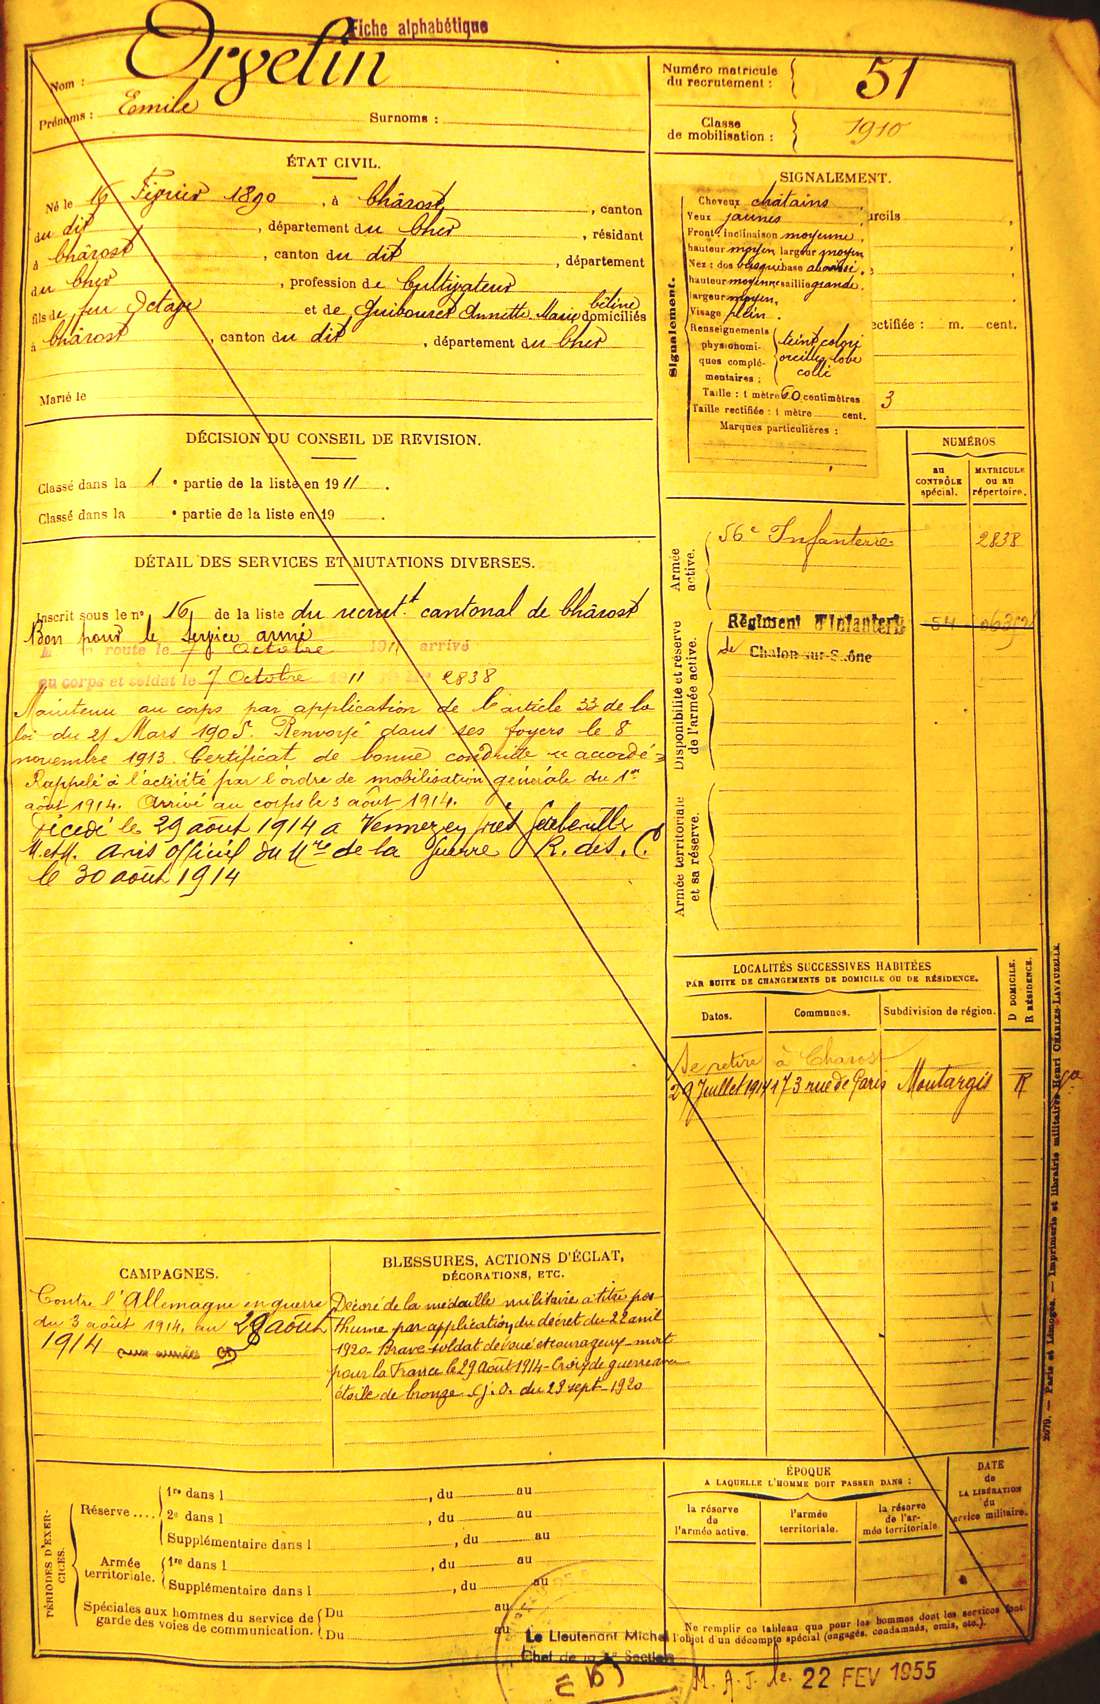 Fiche alphabétique
Nom : Orvelin
Prénoms : Emile Surnoms :
Numéro matricule du recrutement : 51
Classe de mobilisation : 1910
ÉTAT CIVIL.
Né le 16 Février 1890, à Chârost, canton
du dit, département du Cher, résidant
à Chârost, canton du dit, département
du Cher, profession de Cultivateur
fils de feu Octave et de Guibouret Annette Marie Céline domiciliés
à Chârost, canton du dit, département du Cher
Marié le
DÉCISION DU CONSEIL DE REVISION.
Classé dans la 1 e partie de la liste en 1911.
Classé dans la e partie de la liste en 19 .
DÉTAIL DES SERVICES ET MUTATIONS DIVERSES.
Inscrit sous le n° 16 de la liste du recrut.t cantonal de Chârost
Bon pour le service armé
route le 7 Octobre 1911 arrivé
au corps et soldat le 7 Octobre 1911 2838
Maintenu au corps par application de l'article 33 de la
loi du 21 Mars 1905. Renvoyé dans ses foyers le 8
novembre 1913. Certificat de bonne conduite "accordé"
Rappelé à l'activité par l'ordre de mobilisation générale du 1er
août 1914. Arrivé au corps le 3 août 1914.
Décédé le 29 août 1914 a Vennezey près Gerbeviller
M.etM. avis officiel du Mre de la Guerre R. des. C.
le 30 août 1914
SIGNALEMENT.
Signalement.
Cheveux châtains
Yeux jaunes
urcils
Front : inclinaison moyenne,
hauteur moyen largeur moyen
Nez : dos busqué base abaissé,
hauteur moyenne saillie grande.
largeur moyen,
Visage plein.
Renseignements physionomiques complémentaires : teint coloré oreilles lobe collé
Taille : 1 mètre 60 centimètres
Taille rectifiée : 1 mètre cent.
Marques particulières :
ectifiée : m. cent.
3
NUMÉROS
au CONTRÔLE spécial.
MATRICULE ou au répertoire.
Armée active.
56e Infanterie 2838
Disponibilité et réserve de l'armée active.
Régiment d'Infanterie 54
de Chalon-sur-Saône
Armée territoriale et sa réserve.
LOCALITÉS SUCCESSIVES HABITÉES
PAR SUITE DE CHANGEMENTS DE DOMICILE OU DE RÉSIDENCE.
Dates. Communes. Subdivision de région. D DOMICILE. R RÉSIDENCE.
Se retire à Charost
29 Juillet 1914 173 rue de Paris Montargis R
CAMPAGNES.
Contre l'Allemagne en guerre
du 3 août 1914, au 29 août
1914 aux armées
BLESSURES, ACTIONS D'ÉCLAT,
DÉCORATIONS, ETC.
Décoré de la médaille militaire à titre pos-
thume par application du décret du 22 avril
1920. Brave soldat dévoué et courageux mort
pour la France le 29 Août 1914 - Croix de guerre avec
étoile de bronze. J.O. du 29 sept- 1920
PÉRIODES D'EXERCICES.
Réserve .... 1re dans l , du au
2e dans l , du au
Supplémentaire dans l , du au
Armée territoriale. 1re dans l , du au
Supplémentaire dans l , du au
Spéciales aux hommes du service de garde des voies de communication. Du au
Du au
ÉPOQUE
A LAQUELLE L'HOMME DOIT PASSER DANS :
la réserve de l'armée active.
l'armée territoriale.
la réserve de l'armée territoriale.
DATE de LA LIBÉRATION du service militaire.
Ne remplir ce tableau que pour les hommes dont les services font
l'objet d'un décompte spécial (engagés, condamnés, omis, etc.).
Le Lieutenant Michel
Chef de la Section
M. A. J. le 22 FEV 1955
2079. — Paris et Limoges. — Imprimerie et librairie militaires Henri CHARLES-LAVAUZELLE.